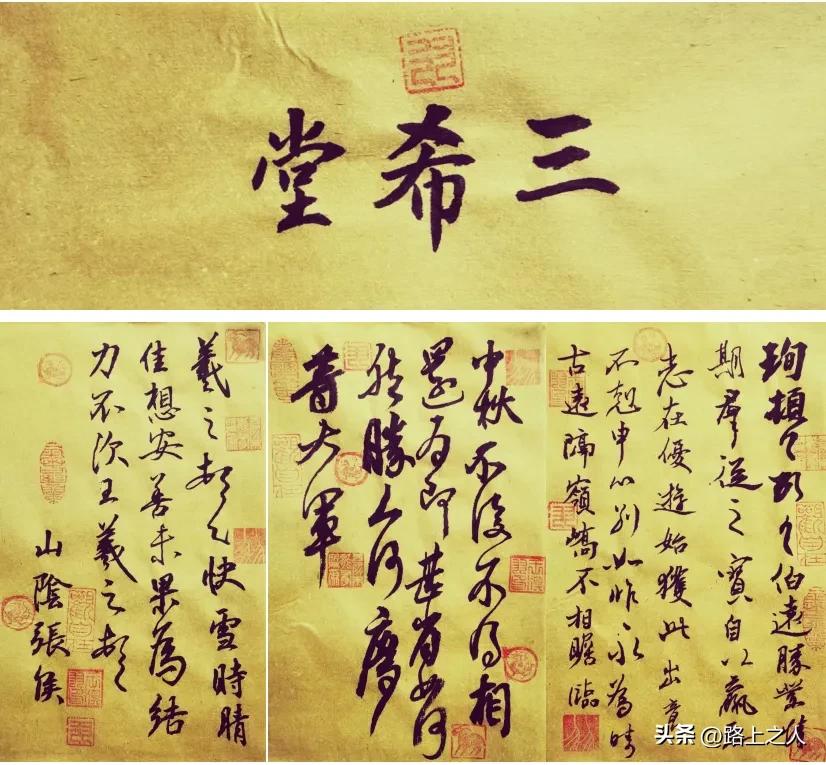 三希堂
珣頓首頓首伯遠勝業情
期群從之寶自以羸患
志在優遊始獲此出意
不剋申分別如昨永為疇
古遠隔嶺嶠不相瞻臨
中秋不復不得相
還為即甚省如何
然勝人何慶
等大軍
羲之頓首快雪時晴
佳想安善未果為結
力不次王羲之頓首
山陰張侯
头条 @路上之人